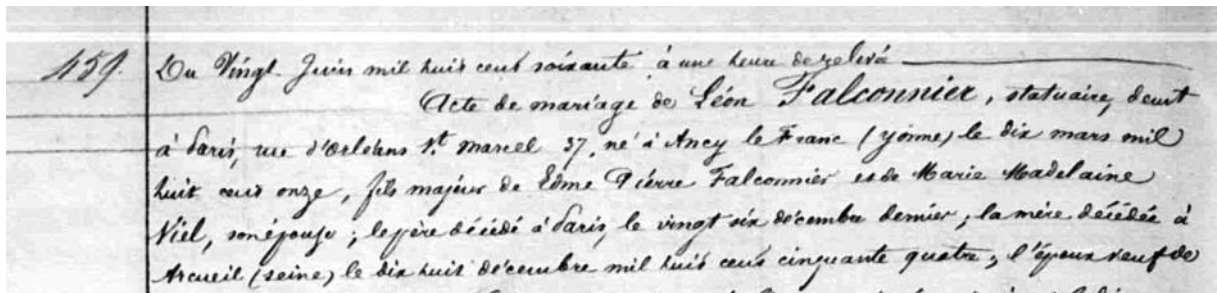 459. Du Vingt Juin mil huit cent soixante à une heure de relevé
Acte de mariage de Léon Falconnier, statuaire, demt
à Paris, rue d'Orléans St. Marcel 37, né à Ancy le Franc (yonne) le dix mars mil
huit cent onze, fils majeur de Edme Pierre Falconnier et de Marie Madelaine
Viel, son épouse ; le père décédé à Paris, le vingt six décembre dernier ; la mère décédée à
Arcueil (seine) le dix huit décembre mil huit cent cinquante quatre ; l'époux veuf de